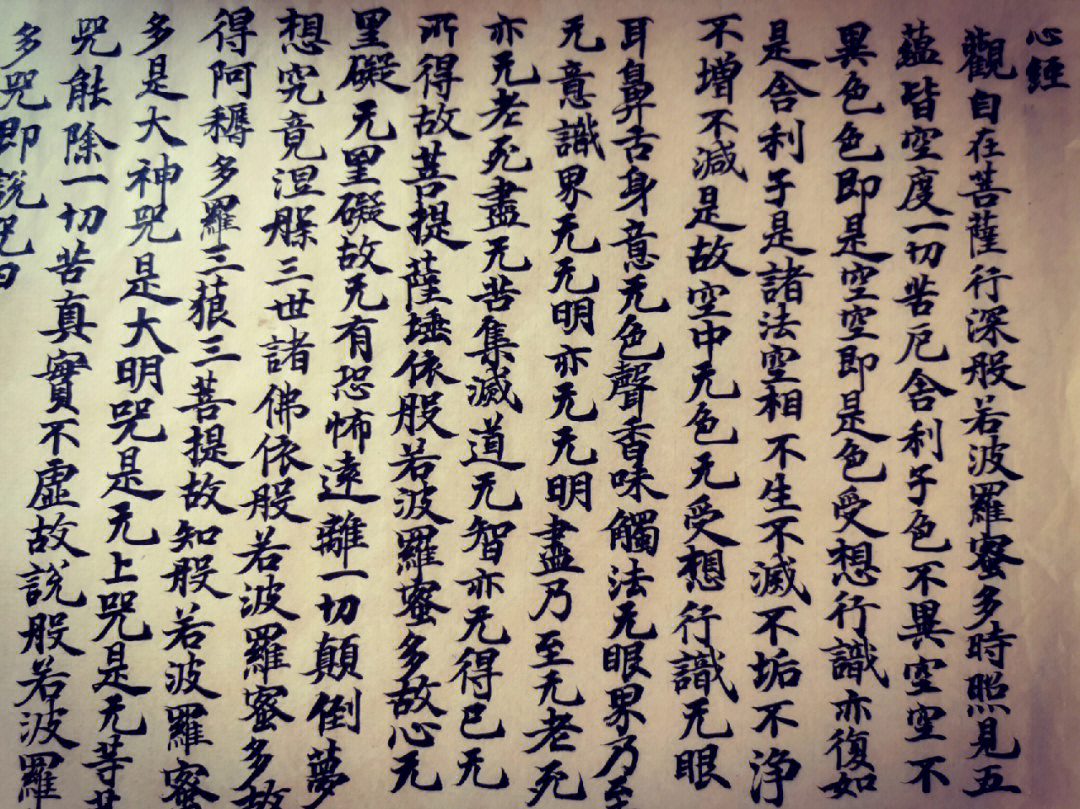 心經
觀自在菩薩行深般若波羅蜜多時照見五
蘊皆空度一切苦厄舍利子色不異空空不
異色色即是空空即是色受想行識亦復如
是舍利子是諸法空相不生不滅不垢不浄
不增不減是故空中无色无受想行識无眼
耳鼻舌身意无色聲香味觸法无眼界乃至
无意識界无无明亦无无明盡乃至无老死
亦无老死盡无苦集滅道无智亦无得已无
所得故菩提薩埵依般若波羅蜜多故心无
罣礙无罣礙故无有恐怖遠離一切顛倒夢
想究竟涅槃三世諸佛依般若波羅蜜多故
得阿耨多羅三藐三菩提故知般若波羅蜜
多是大神咒是大明咒是无上咒是无等
咒能除一切苦真實不虛故說般若波羅
多咒即說咒曰